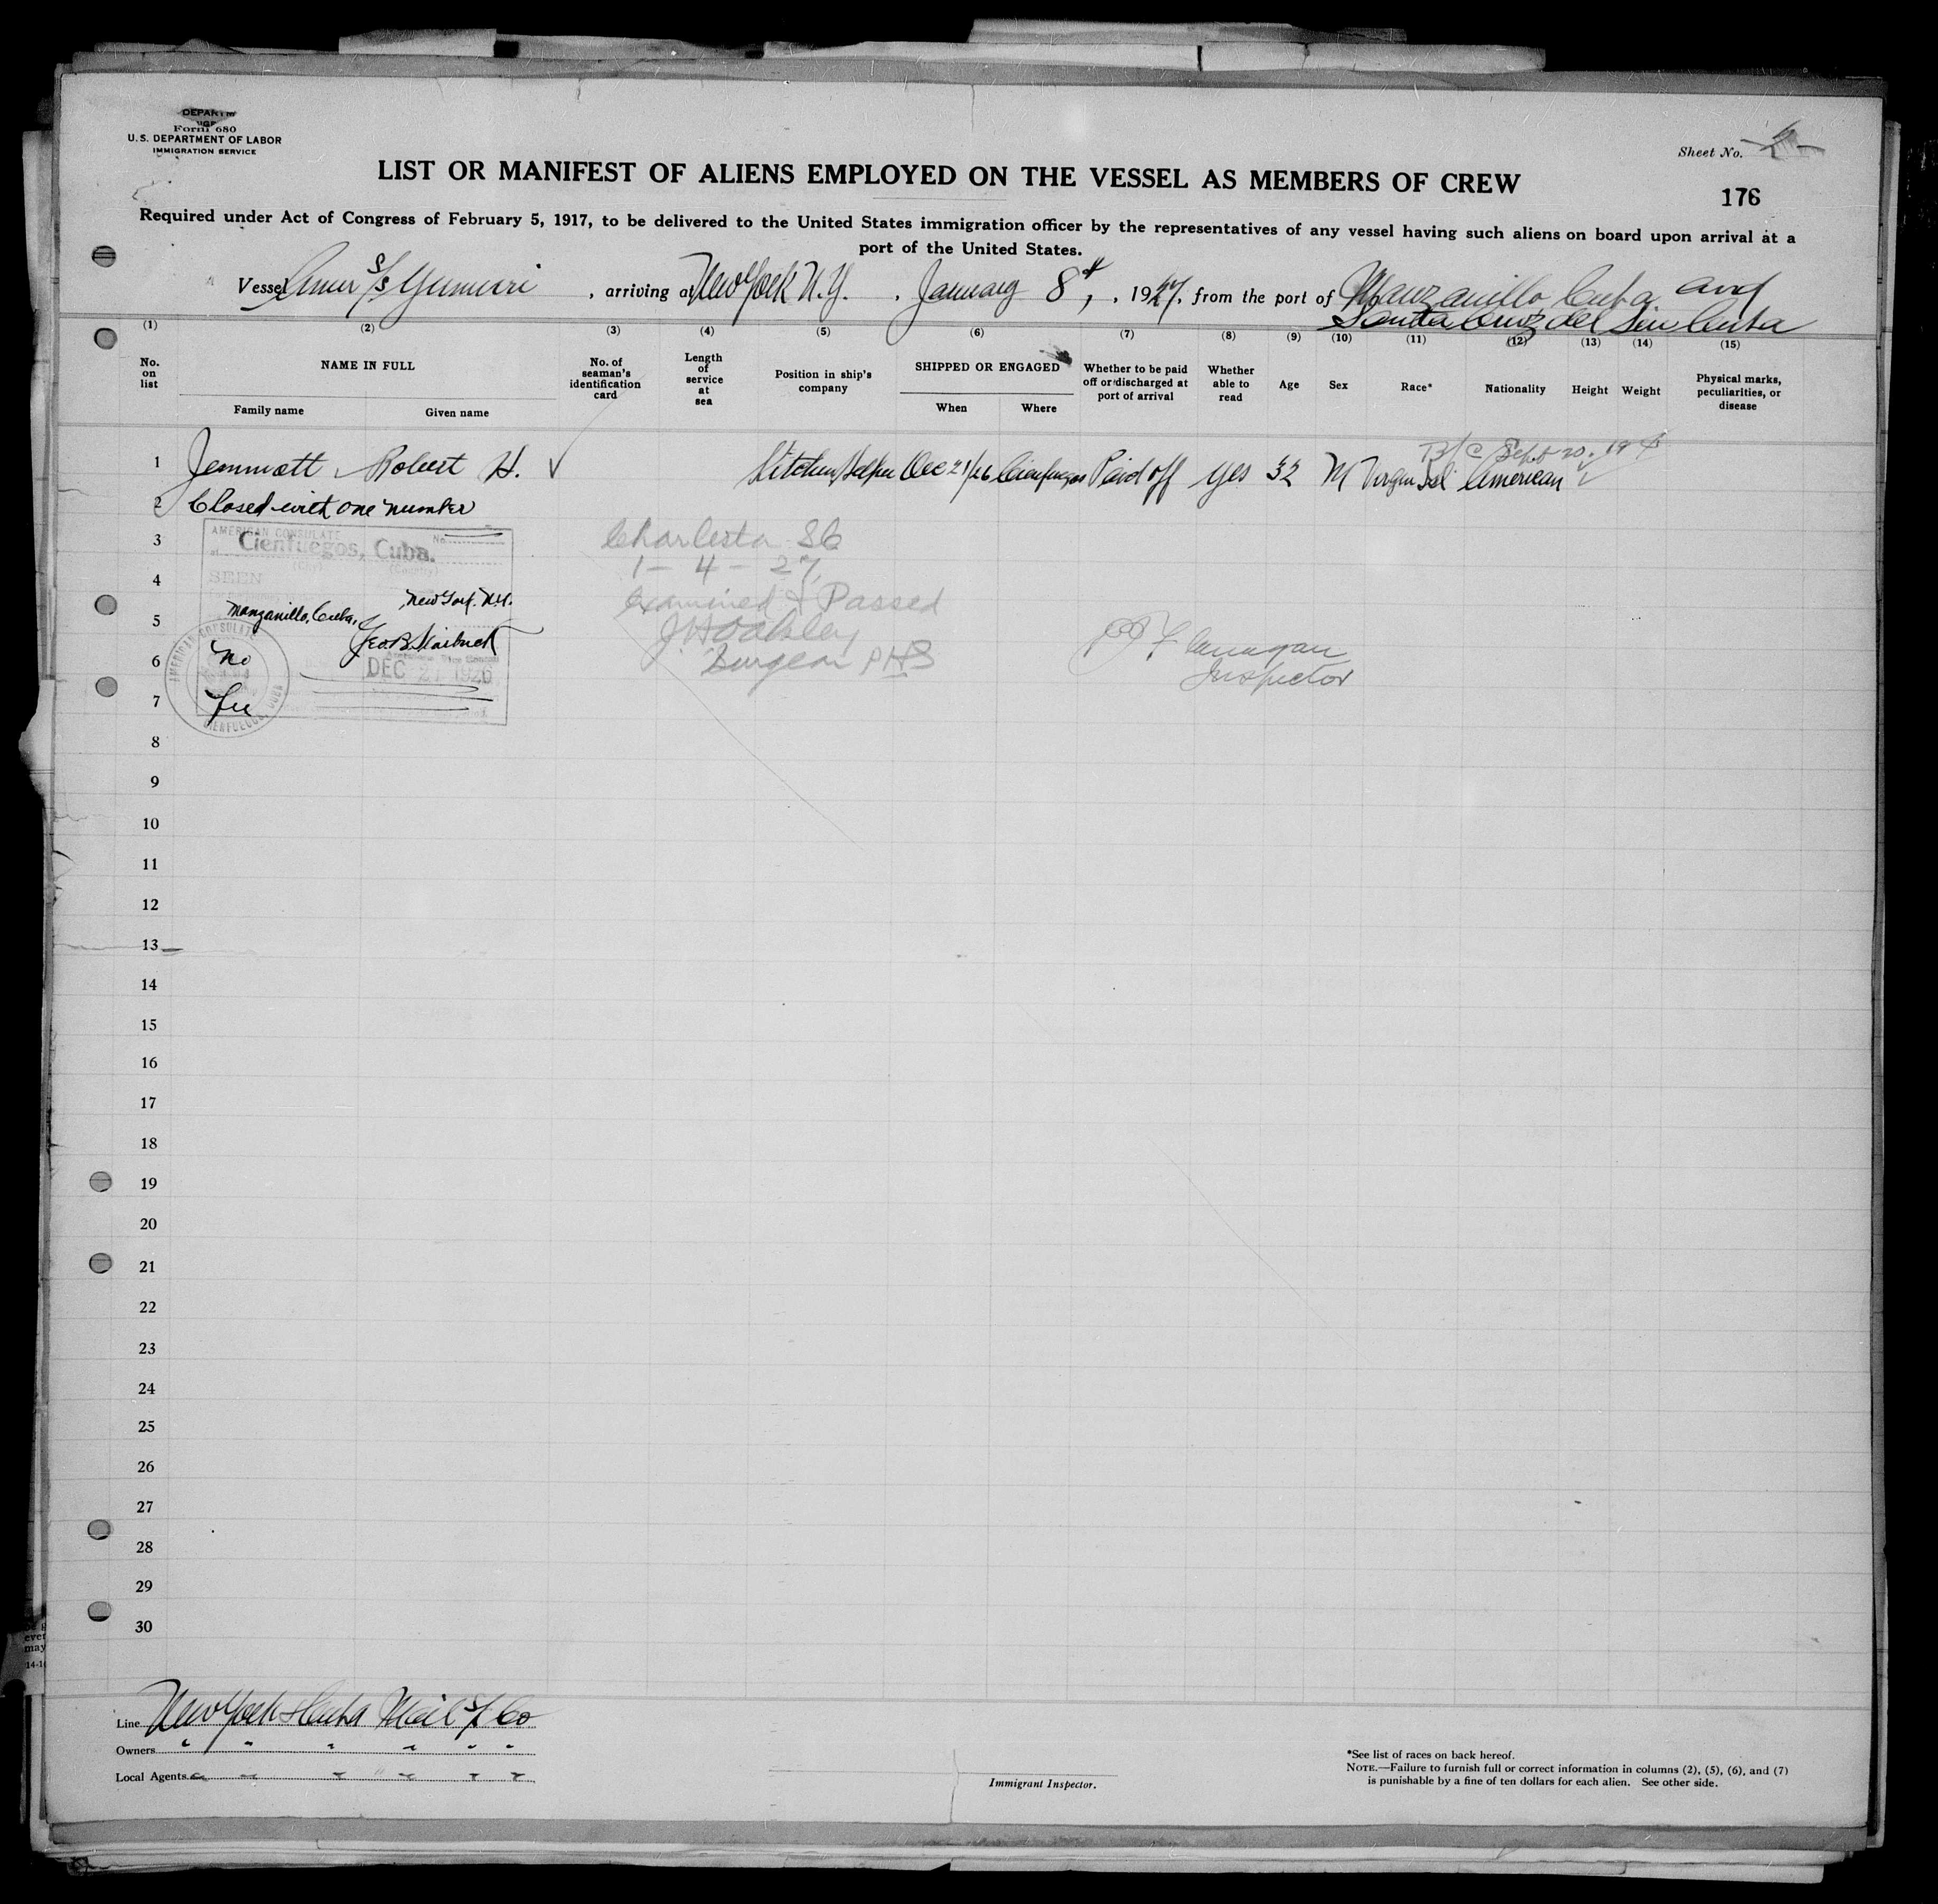 Form 680
U.S. DEPARTMENT OF LABOR
IMMIGRATION SERVICE
Sheet No.
LIST OR MANIFEST OF ALIENS EMPLOYED ON THE VESSEL AS MEMBERS OF CREW
176
Required under Act of Congress of February 5, 1917, to be delivered to the United States immigration officer by the representatives of any vessel having such aliens on board upon arrival at a
port of the United States.
Vessel Amer S/S Yumuri, arriving at New York N.Y., January 8th, 1927, from the port of Manzanillo Cuba and
Santa Cruz del Sur Cuba
(1) (2) (3) (4) (5) (6) (7) (8) (9) (10) (11) (12) (13) (14) (15)
No. on list NAME IN FULL Family name Given name No. of seaman's identification card Length of service at sea Position in ship's company SHIPPED OR ENGAGED When Where Whether to be paid off or discharged at port of arrival Whether able to read Age Sex Race* Nationality Height Weight Physical marks, peculiarities, or disease
B/C Sept 20, 19
1 Jemmott Robert H. Kitchen Helper Dec 21/26 Cienfuegos Paid off yes 32 M Virgin Isl American
2 Closed with one number
3
AMERICAN CONSULATE No.
at Cienfuegos, Cuba.
(City) (Country)
SEEN
Manzanillo, Cuba, New York. N.Y.
Geo. B. Starbuck
DEC 21 1926
No
fee
AMERICAN CONSULATE
CIENFUEGOS, CUBA
Charleston SC
1-4-27
Examined & Passed
J H Oakley
Surgeon PHS
Flanagan
Inspector
4
5
6
7
8
9
10
11
12
13
14
15
16
17
18
19
20
21
22
23
24
25
26
27
28
29
30
Line New York & Cuba Mail S/S Co
Owners " " " " " "
Local Agents " " " " " "
Immigrant Inspector.
*See list of races on back hereof.
NOTE.—Failure to furnish full or correct information in columns (2), (5), (6), and (7)
is punishable by a fine of ten dollars for each alien. See other side.